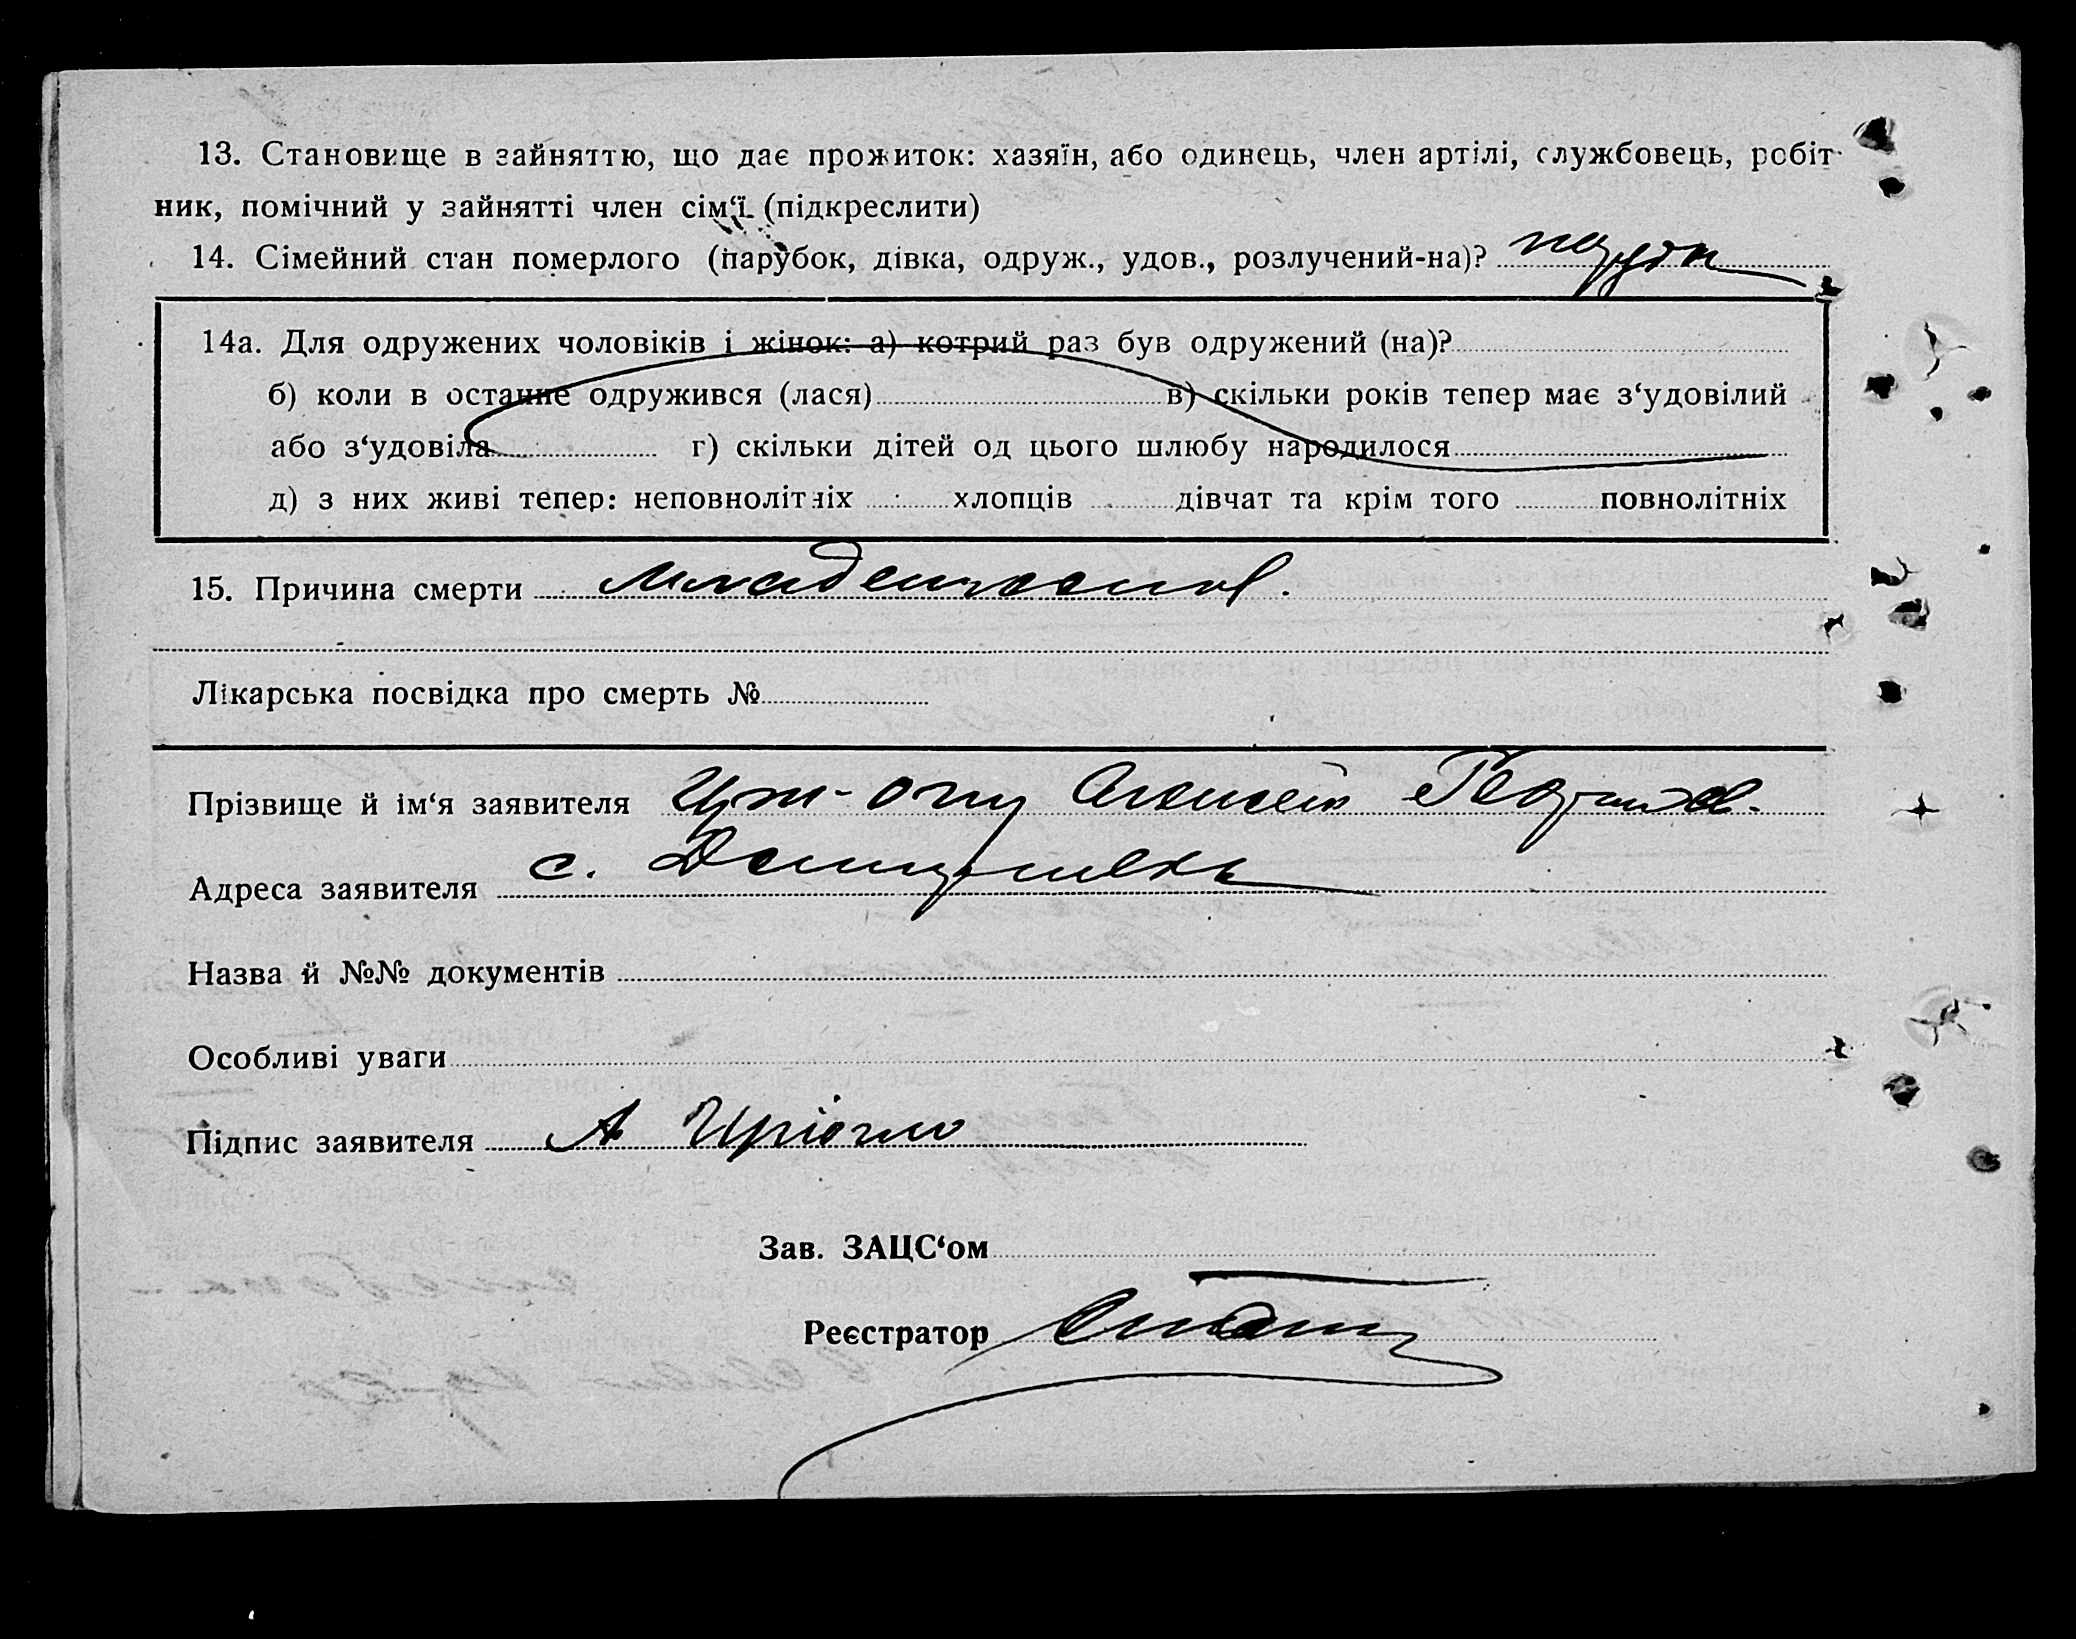 13. Становище в зайняттю, що дає прожиток: хазяїн, або одинець, член артілі, службовець, робіт-
ник, помічний у зайнятті член сім‘ї (підкреслити)
14. Сімейний стан померлого (парубок, дівка, одруж., удов., розлучений-на)?
14а. Для одружених чоловіків і жінок: а) котрий раз був одружений (на)?
б) коли в останнє одружився (лася) в) скільки років тепер має з‘удовілий
або з‘удовіла г) скільки дітей од цього шлюбу народилося
д) з них живі тепер: неповнолітніх хлопців дівчат та крім того повнолітніх
15. Причина смерти младенческая.
Лікарська посвідка про смерть №
Прізвище й ім‘я заявителя Алексей
Адреса заявителя с.
Назва й №№ документів
Особливі уваги
Підпис заявителя А
Зав. ЗАЦС‘ом
Реєстратор